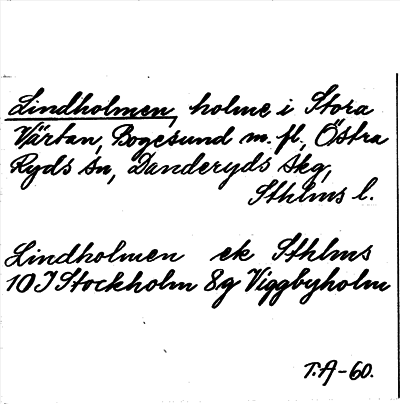 Lindholmen, holme i Stora
Värtan, Bogesund m. fl., Östra
Ryds sn, Danderyds skg,
Sthlms l.
Lindholmen ek Sthlms
10 I Stockholm 8g Viggbyholm
T.A-60.